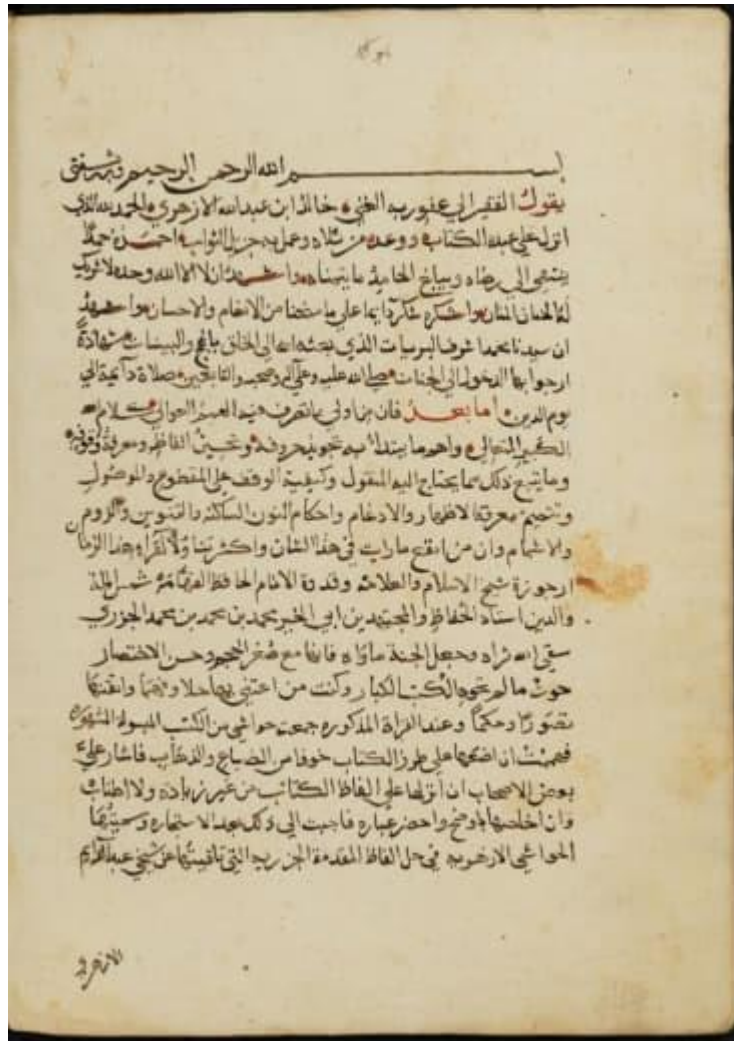 بسم الله الرحمن الرحيم وبه ثقتي
يقول الفقير الى عفو ربه الغني خالد ابن عبدالله الازهري الحمد لله الذي
انزل على عبده الكتاب ووعد من تلاه وعمل به جزيل الثواب احمده حمدا
ينتهي الى رضاه ويبلغ الحامد ما يتمناه واشهد ان لا اله الا الله وحده لا شريك
له الحنان المنان واشكره شكرا دايما على ما منحنا من الانعام والاحسان واشهد
ان سيدنا محمدا شرف البريات الذي بعثه الله الى الخلق بالحج والبينات شهادة
ارجوا بها الدخول الى الجنات صلى الله عليه وعلى اله وصحبه والتابعين صلاة دايمة الى
يوم الدين اما بعد فان من اولى ما تصرف فيه الهمم العوالي كلام الله
الكبير المتعالي واهم ما يبتدا به تجويد حروفه وتحسين الفاظه ومعرفة وقوفه
وما يتبع ذلك مما يحتاج اليه المنقول وكيفية الوقف على المقطوع والموصول
وتتميم معرفة الاظهار والادغام واحكام النون الساكنة والتنوين والروم
والاشمام وان من انفع ما رايت في هذا الشان واكثر تناولا لقراء هذا الزمان
ارجوزة شيخ الاسلام والعلامه وقدوة الانام الحافظ الفهامة شمس الملة
والدين استاد الحفاظ والمجتهدين ابي الخير محمد بن محمد بن محمد الجزري
سقى الله ثراه وجعل الجنة ماواه فانها مع صغر الحجم وحسن الاختصار
حوت ما لم تحوه الكتب الكبار وكنت من اعتنى بها حلا وفهما واتقنها
تصورا وحكما وعند القراة المذكوره جمعت حواشي من الكتب المبسوطة المشهوره
فهممت ان اضعها على طرز الكتاب خوفا من الضياع والذهاب فاشار علي
بعض الاصحاب ان انزلها على الفاظ الكتاب من غير زيادة ولا اطناب
وان اخلصها باوضح واخصر عباره فاجبت الى ذلك بعد الاستخاره وسميتها
الحواشي الازهريه في حل الفاظ المقدمة الجزريه التي تلقيتها عن شيخي عبدالدايم
الازهري